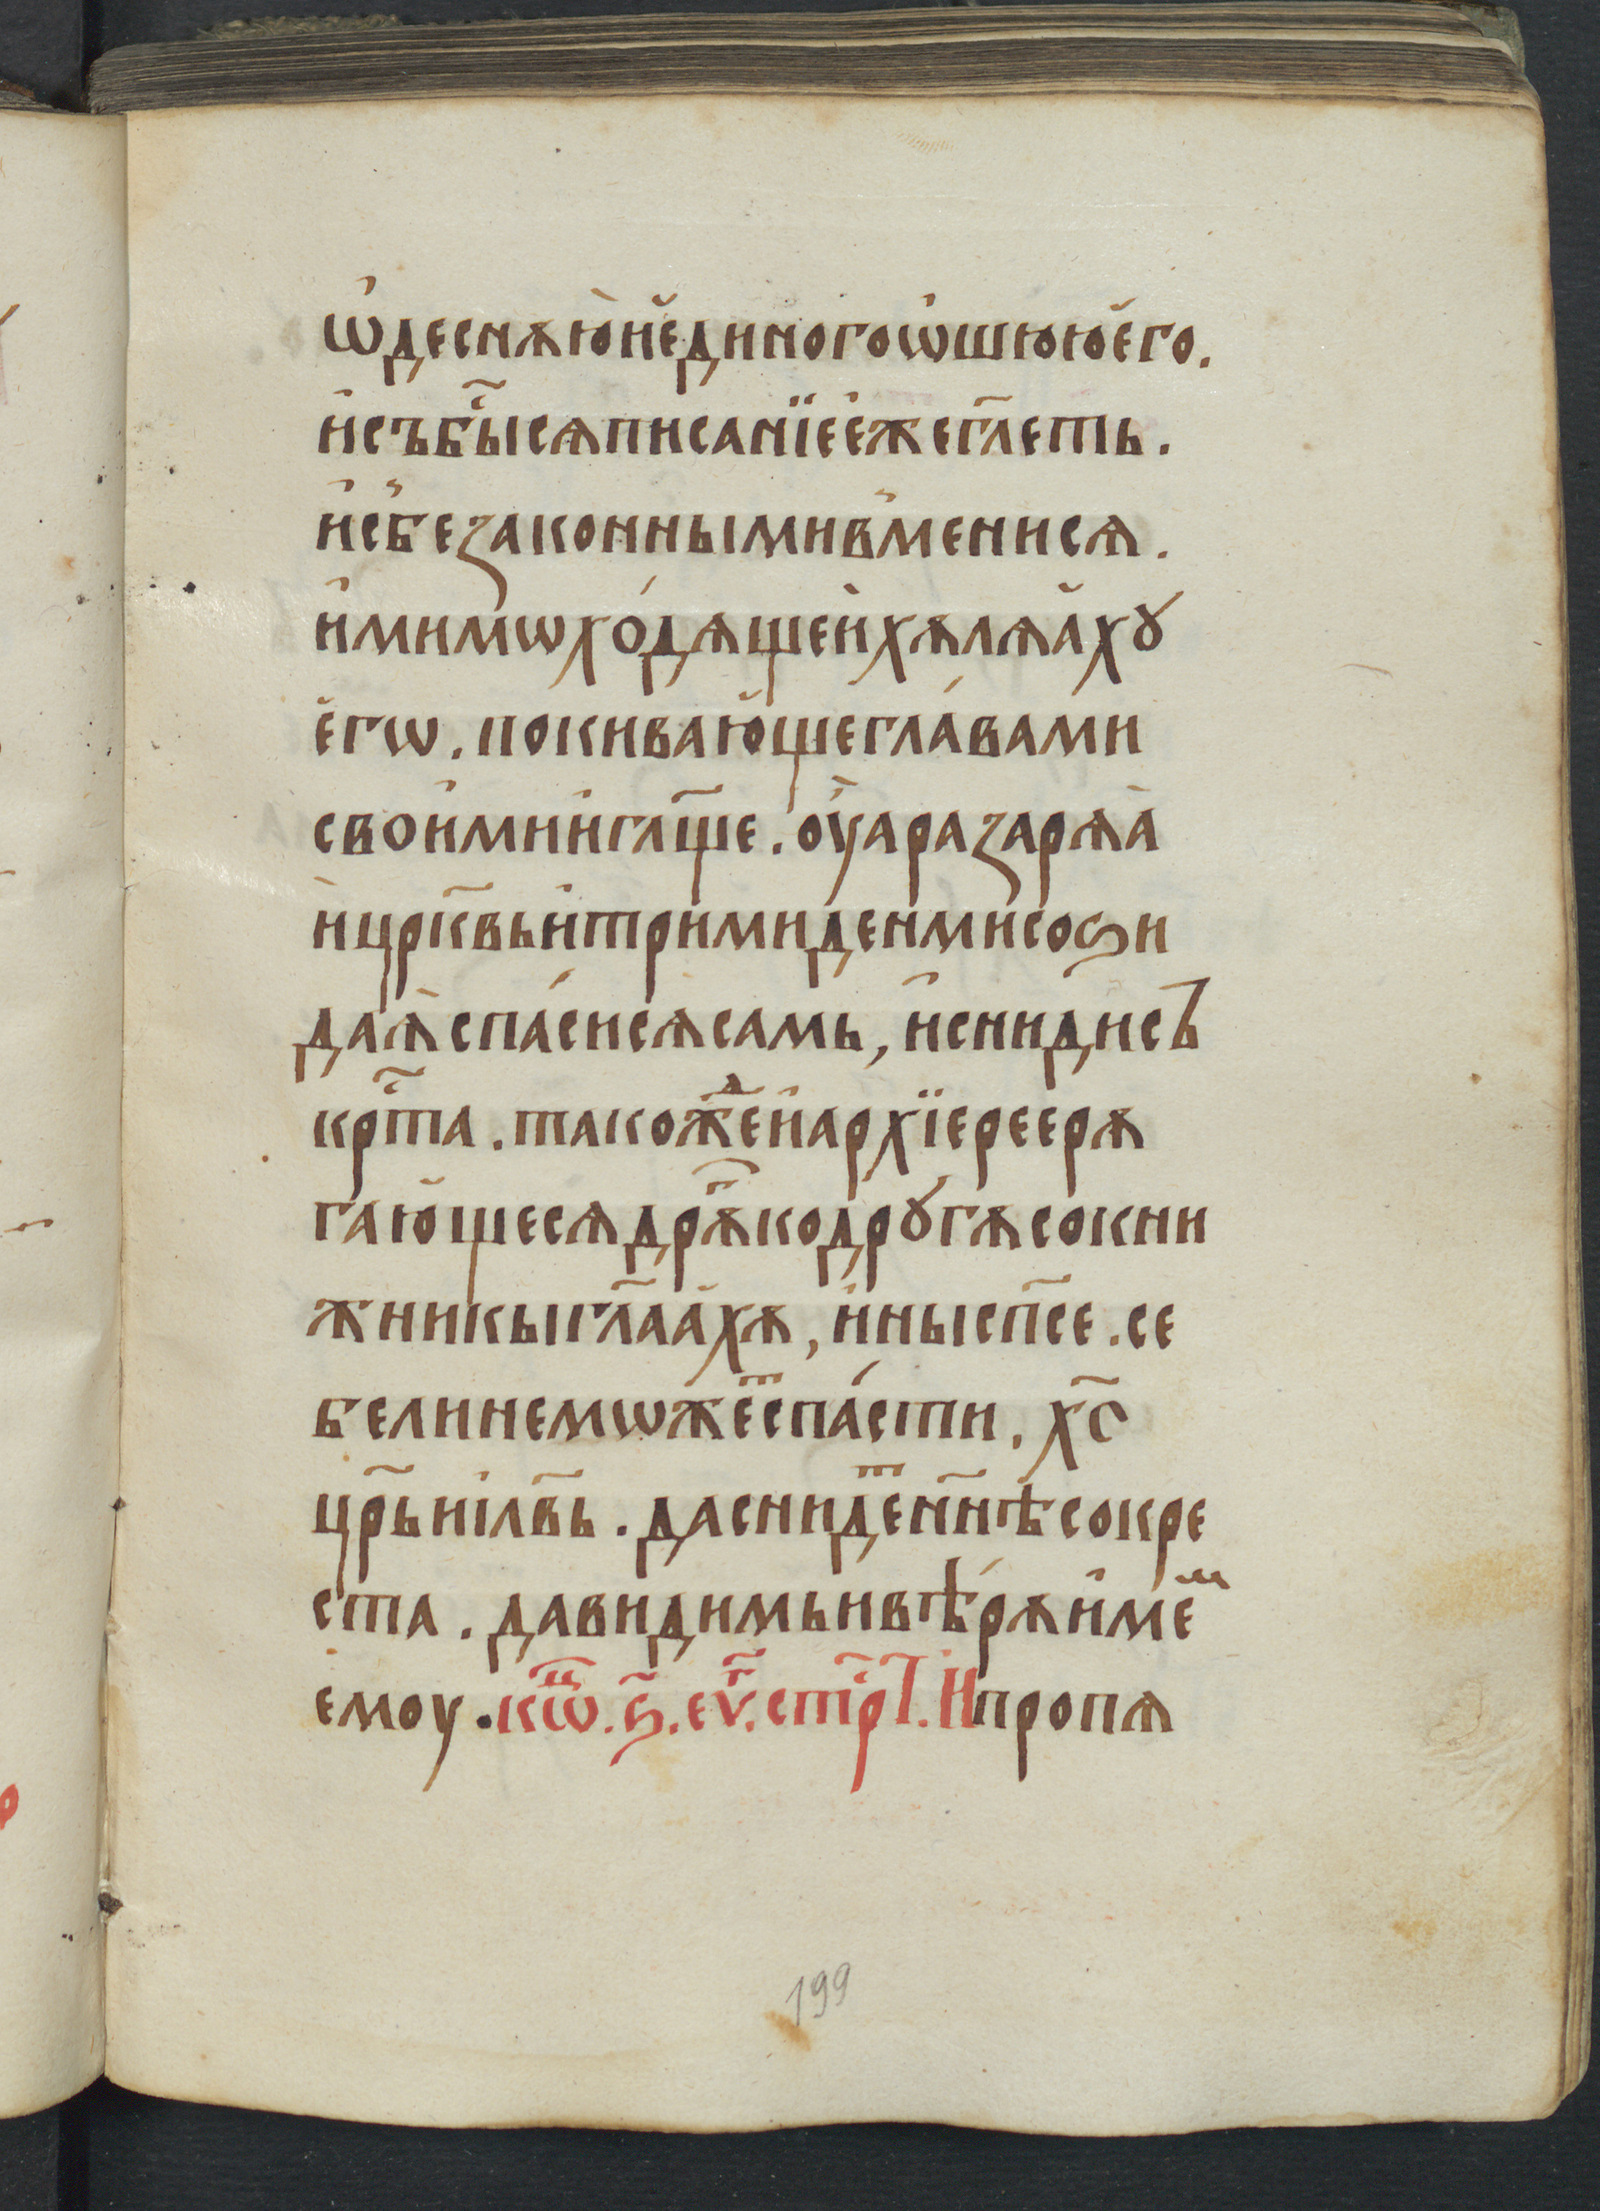 ѡ҆деснѫю̀и҆є҆диногоѡ҆шююе҆го.
и҆събы҃сѧписанїеє҆жегл҃еть.
и҆с̾беꙁаконнымив̾менисѧ.
и҆мимѡхо́дѧщеи҆хѫлѧа҆хꙋ
є҆гѡ. покиваю҆щегла́вами
свои҆мии҆гл҃ще. оу҆араꙁарѧа̀
и҆црк҃вьи҆тримиденмисоѕи
даѧ҆спа́сисѧ̀самь, и҆снидисъ
крⷭ҇та. такожⷣеи҆архїерееерѫ
гаю҆щесѧдрⷹ҇ѫкодрꙋгѫсокни
жникыгл҃аа҆хѫ, и҆ныспⷭ҇е. се
белинемѡжеⷮспа́сти. хс҃
цр҃ьиі҆л҃вь. даснидеⷮнн҃ѣсокре
ста. давидимьивѣ́рѫи҆меⷨ
емоу. кѡⷰ҇. ѕ҃. еѵⷢ҇. стрⷭ҇т. И҆пропѧ
199